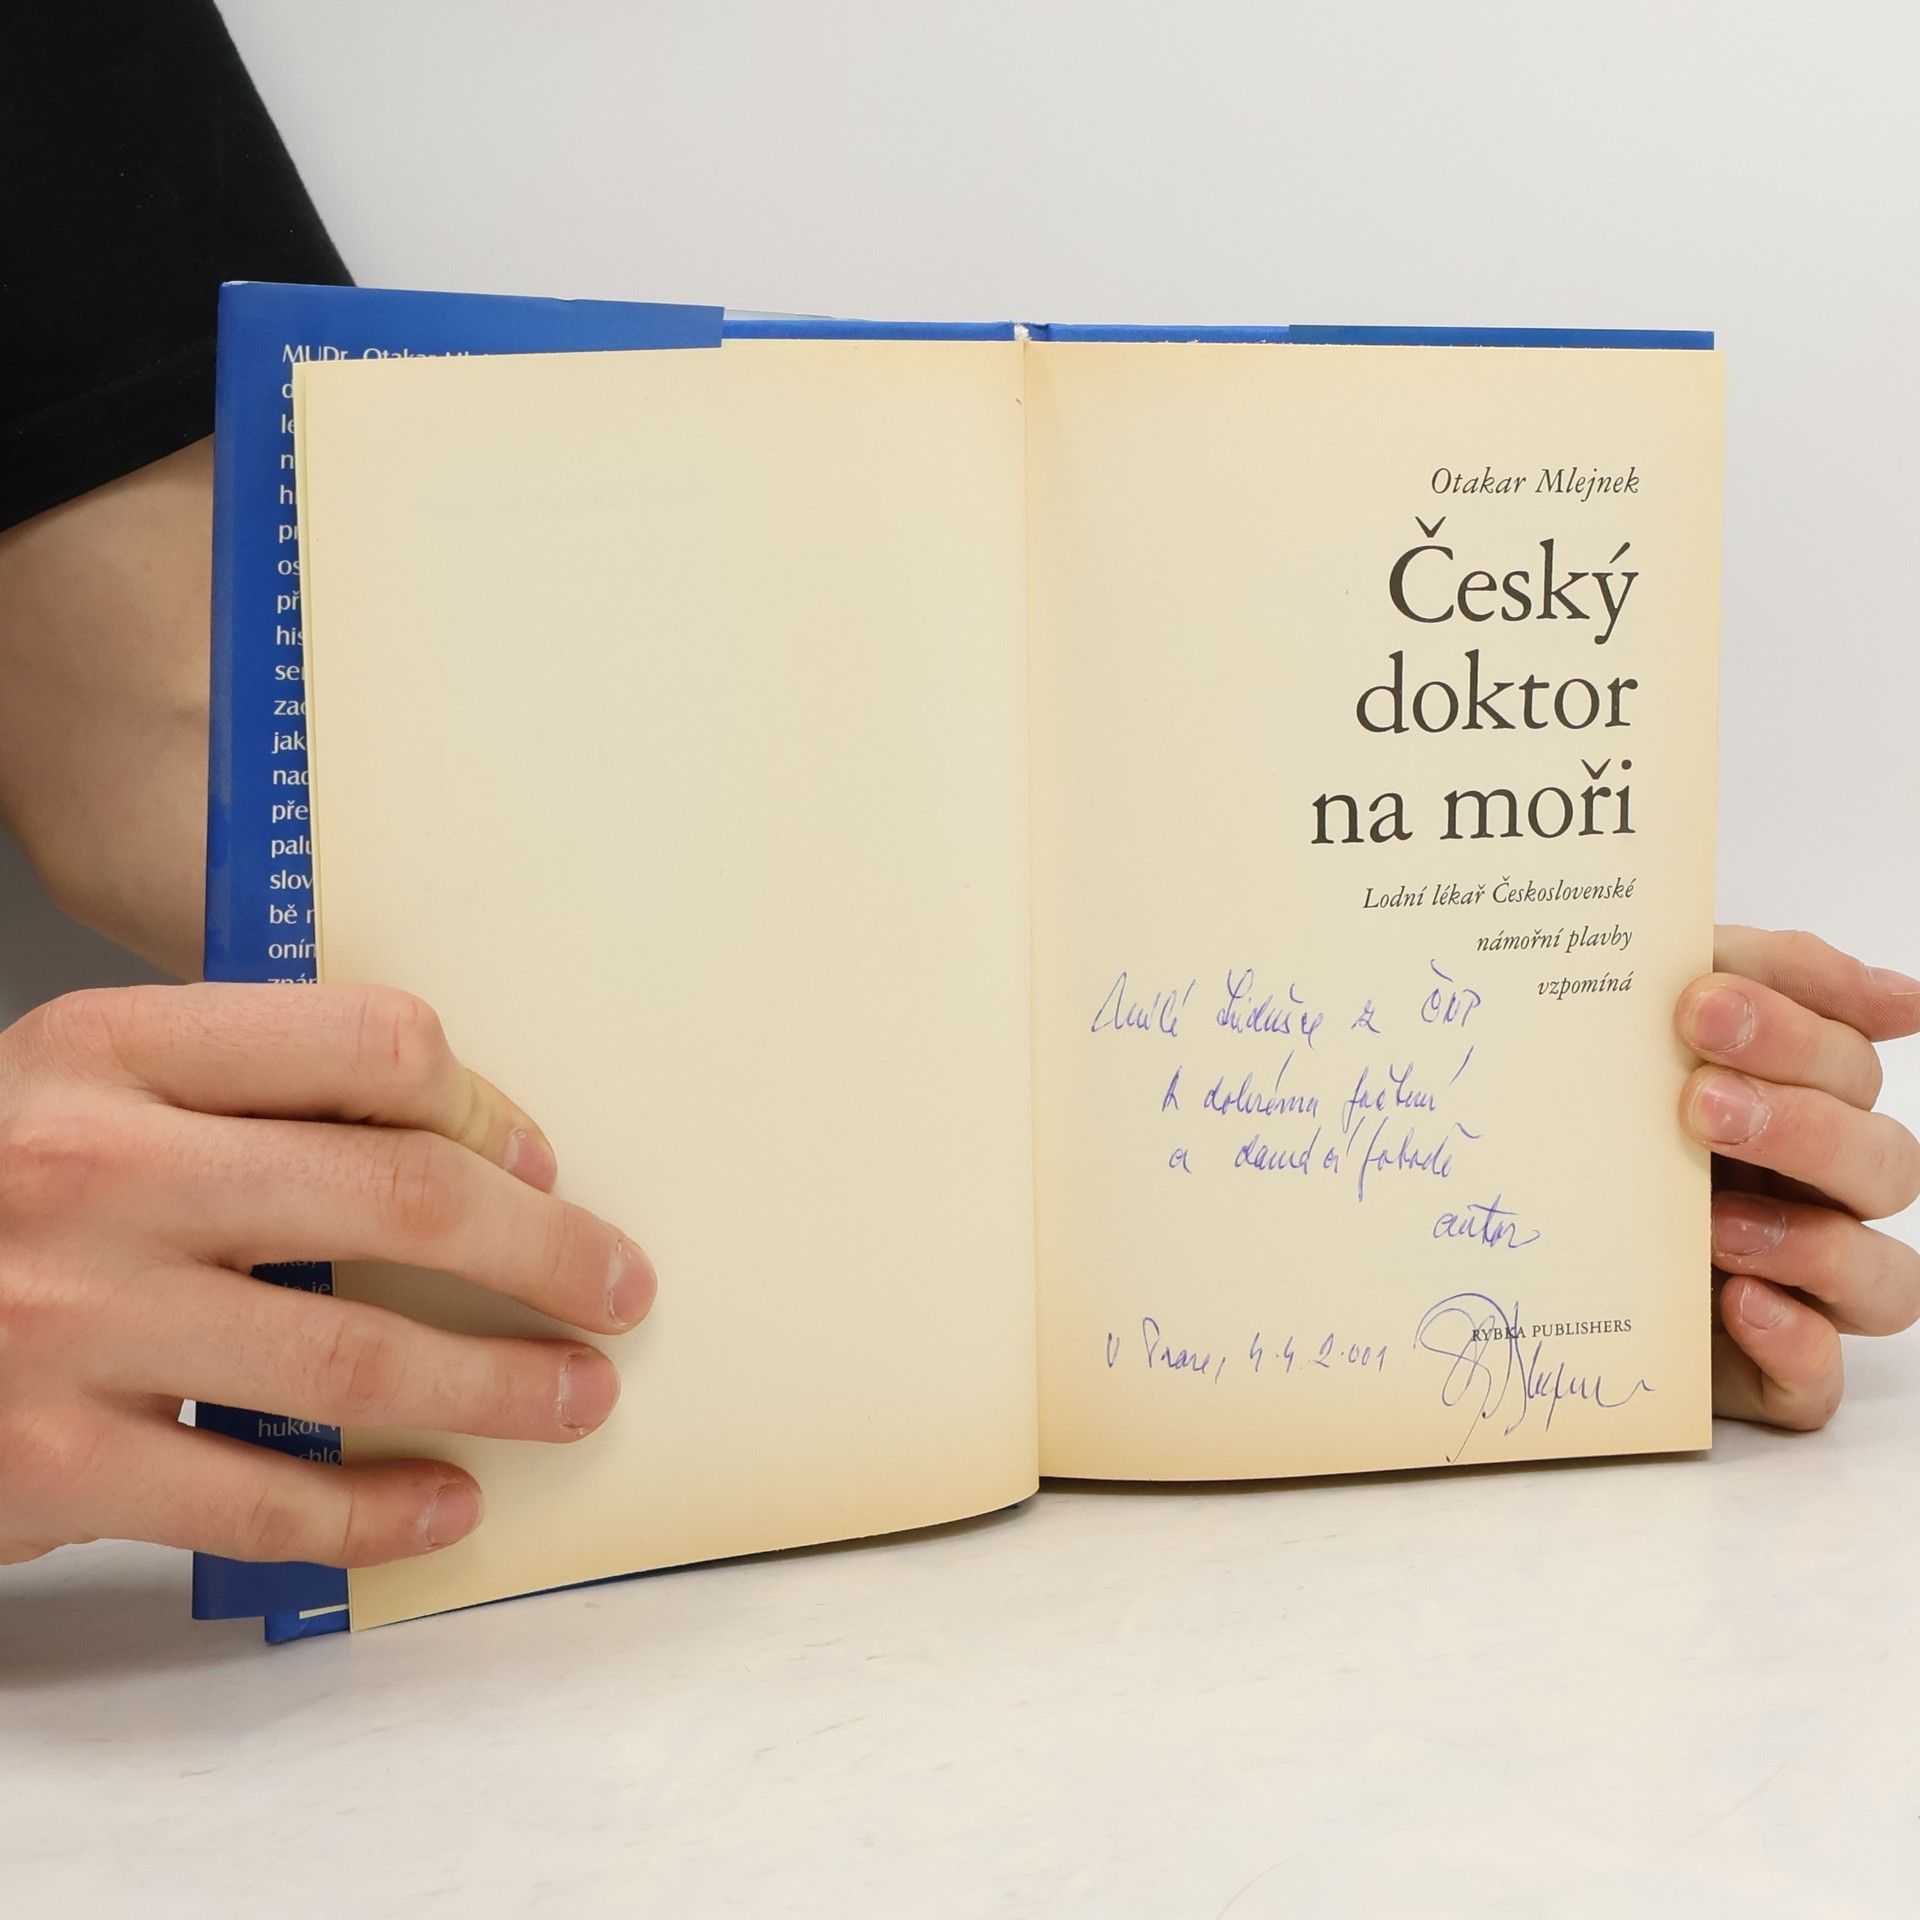 MUDr. Otakar
le
hi
pr
os
př
his
ser
zad
jak
nad
pře
palu
slov
bě
oním
je
hukot
chlo
Otakar Mlejnek
Český
doktor
na moři
Lodní lékař Československé
námořní plavby
vzpomíná
Milé Lidušce z ČNP
k dobrému počtení
a domácí pohodě
autor
RYBKA PUBLISHERS
V Praze, 4.4.2.001